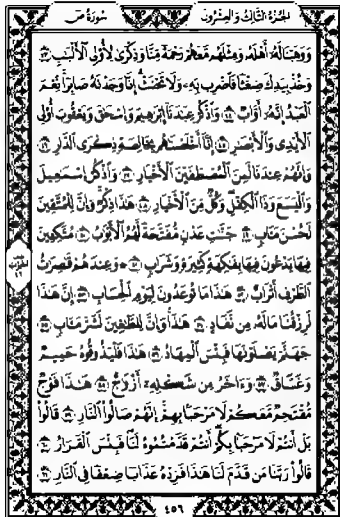 الجزء الثالث والعشرون سورة ص
ووهبنا له أهله ومثلهم معهم رحمة منا وذكرى لأولي الألباب ٤٣
وخذ بيدك ضغثا فاضرب به ولا تحنث إنا وجدناه صابرا نعم
العبد إنه أواب ٤٤ واذكر عبادنا إبراهيم وإسحاق ويعقوب أولي
الأيدي والأبصار ٤٥ إنا أخلصناهم بخالصة ذكرى الدار ٤٦
وإنهم عندنا لمن المصطفين الأخيار ٤٧ واذكر إسماعيل
واليسع وذا الكفل وكل من الأخيار ٤٨ هذا ذكر وإن للمتقين
لحسن مآب ٤٩ جنات عدن مفتحة لهم الأبواب ٥٠ متكئين
فيها يدعون فيها بفاكهة كثيرة وشراب ٥١ وعندهم قاصرات
الطرف أتراب ٥٢ هذا ما توعدون ليوم الحساب ٥٣ إن هذا
لرزقنا ما له من نفاد ٥٤ هذا وإن للطاغين لشر مآب ٥٥
جهنم يصلونها فبئس المهاد ٥٦ هذا فليذوقوه حميم
وغساق ٥٧ وآخر من شكله أزواج ٥٨ هذا فوج
مقتحم معكم لا مرحبا بهم إنهم صالوا النار ٥٩ قالوا
بل أنتم لا مرحبا بكم أنتم قدمتموه لنا فبئس القرار ٦٠
قالوا ربنا من قدم لنا هذا فزده عذابا ضعفا في النار ٦١
٤٥٦